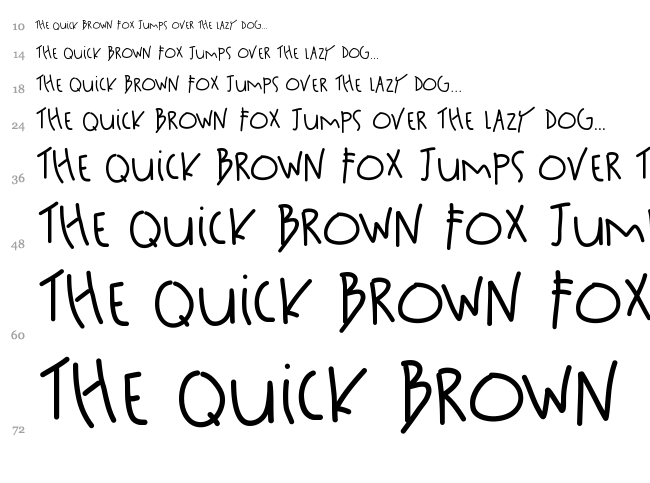 10 THE QUICK BROWN FOX JUMPS OVER THE LAZY DOG...
14 THE QUICK BROWN FOX JUMPS OVER THE LAZY DOG...
18 THE QUICK BROWN FOX JUMPS OVER THE LAZY DOG...
24 THE QUICK BROWN FOX JUMPS OVER THE LAZY DOG...
36 THE QUICK BROWN FOX JUMPS OVER T
48 THE QUICK BROWN FOX JUM
60 THE QUICK BROWN FOX
72 THE QUICK BROWN